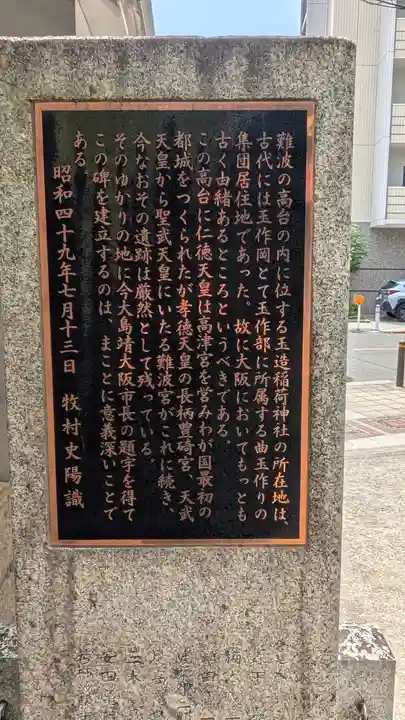 難波の高台の内に位する玉造稲荷神社の所在地は、
古代には玉作岡とて玉作部に所属する曲玉作りの
集団居住地であった。故に大阪においてもっとも
古く由緒あるところというべきである。
この高台に仁徳天皇は高津宮を営みわが国最初の
都城をつくられたが孝徳天皇の長柄豊碕宮、天武
天皇から聖武天皇にいたる難波宮がこれに続き、
今なおその遺跡は厳然として残っている。
そのゆかりの地に今大島靖大阪市長の題字を得て
この碑を建立するのは、まことに意義深いことで
ある
昭和四十九年七月十三日 牧村史陽識